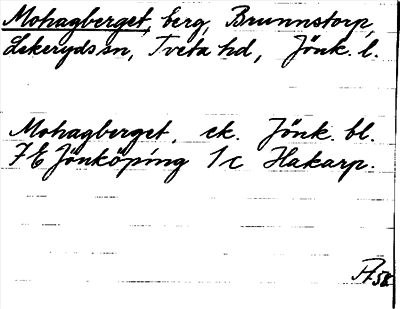 Mohagberget, berg, Brunnstorp,
Lekeryds sn, Tveta hd, Jönk. l.
Mohagberget, ek. Jönk. bl.
7E Jönköping 1c Hakarp.